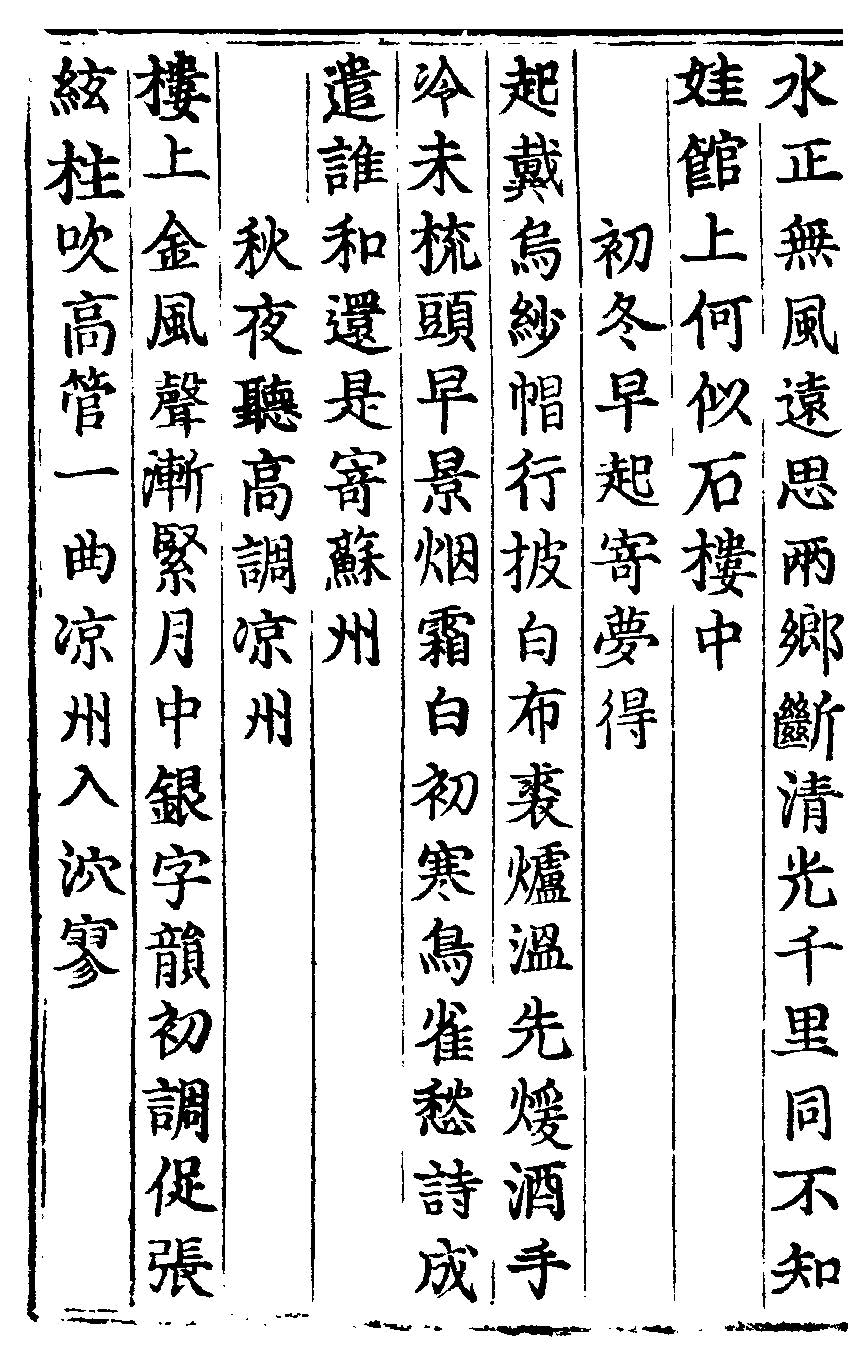 水正無風遠思兩鄉斷清光千里同不知
娃館上何似石樓中
初冬早起寄夢得
起戴烏紗帽行披白布裘爐溫先煖酒手
冷未梳頭早景烟霜白初寒鳥雀愁詩成
遣誰和還是寄蘇州
秋夜聽高調凉州
樓上金風聲漸緊月中銀字韻初調促張
絃柱吹高管一曲凉州入泬寥